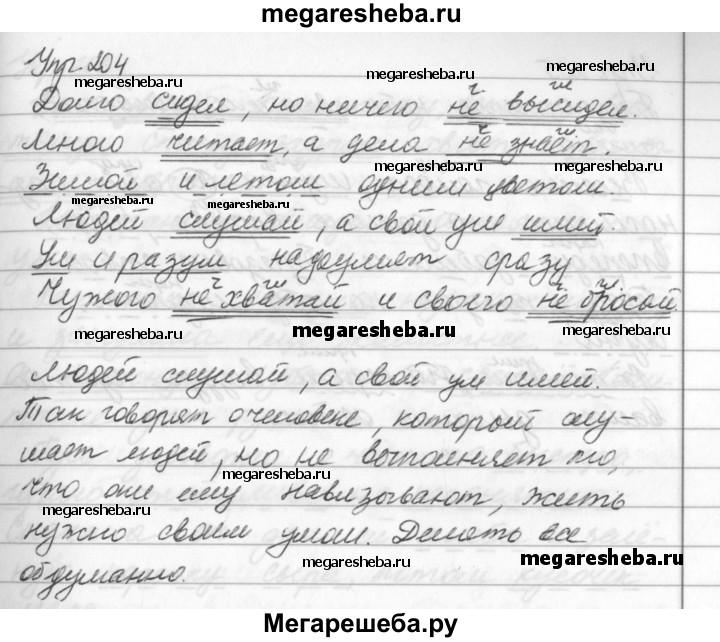 megaresheba.ru
Упр. 204
megaresheba.ru
megaresheba.ru
Долго сидел, но ничего не высидел.
ч гл
megaresheba.ru
megaresheba.ru
Много читает, а дела не знает.
ч гл
megaresheba.ru
megaresheba.ru
Зимой и летом одним цветом.
megaresheba.ru
megaresheba.ru
Людей слушай, а свой ум имей.
Ум и разум надоумят сразу
Чужого не хватай и своего не бросай.
ч гл ч гл
megaresheba.ru
megaresheba.ru
megaresheba.ru
Людей слушай, а свой ум имей.
Так говорят о человеке, который слу-
шает людей, но не выполняет то,
megaresheba.ru
что они ему навязывают, жить
megaresheba.ru
megaresheba.ru
нужно своим умом. Делать все
megaresheba.ru
обдуманно.
Мегарешеба.ру